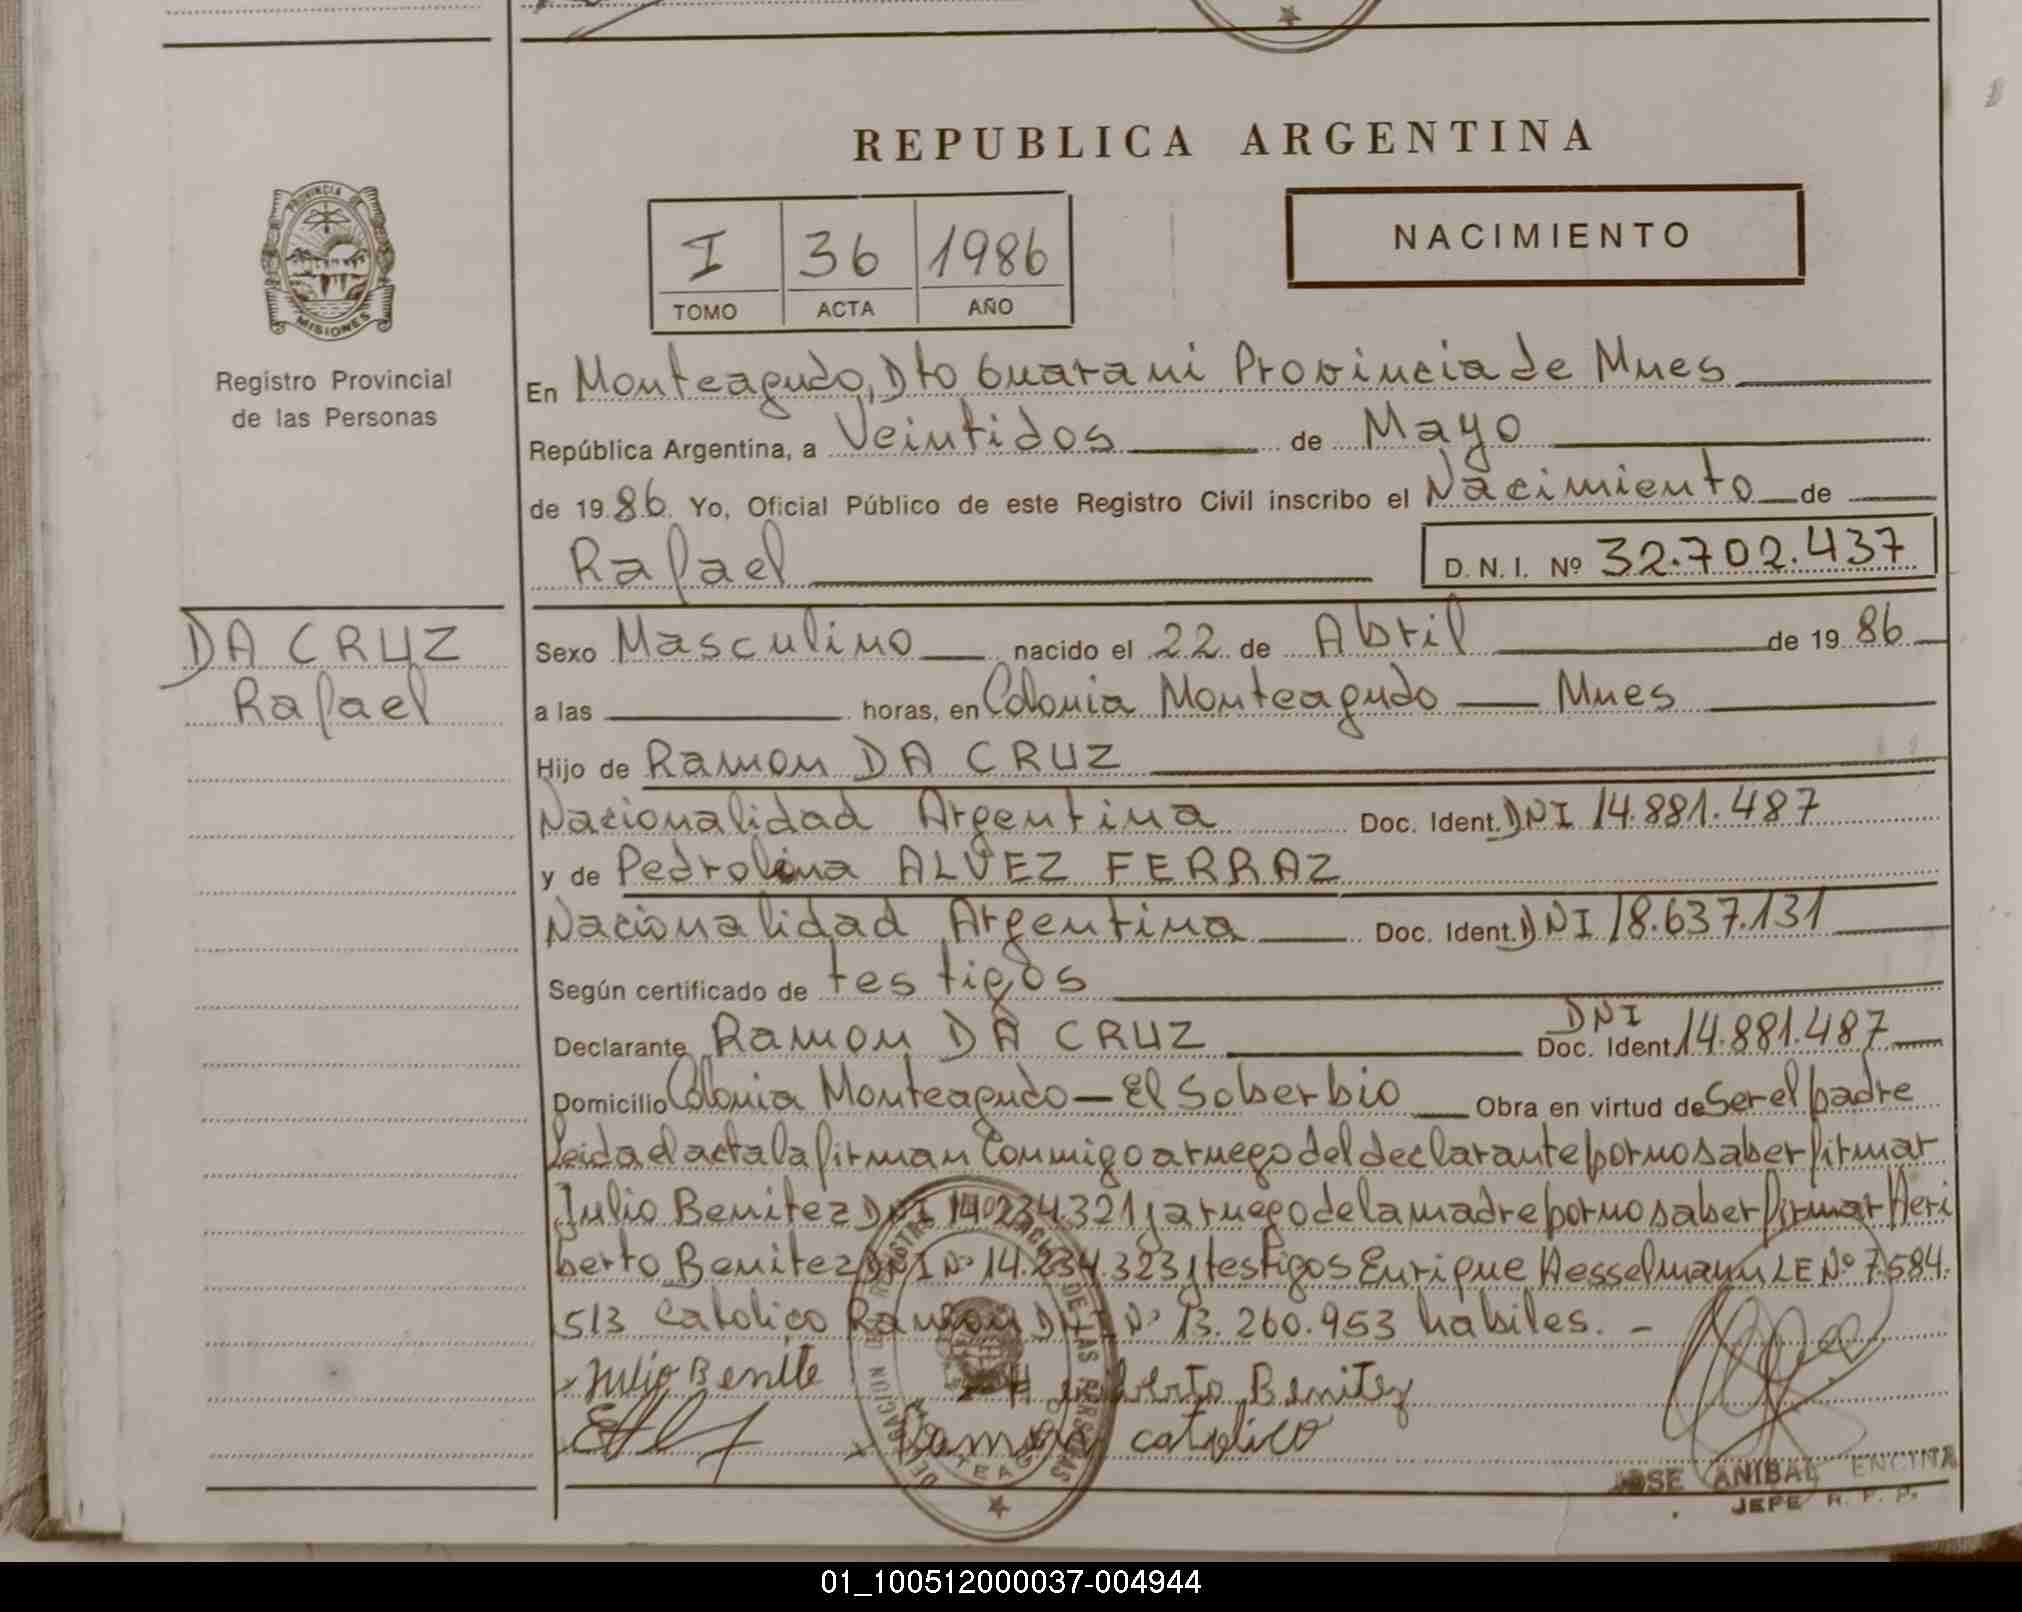 REPUBLICA ARGENTINA
PROVINCIA DE
MISIONES
Registro Provincial
de las Personas
I 36 1986
TOMO ACTA AÑO
NACIMIENTO
En Monteagudo, Dto Guarani Provincia de Mnes
República Argentina, a Veintidos de Mayo
de 1986. Yo, Oficial Público de este Registro Civil inscribo el Nacimiento de
Rafael
D. N. I. Nº 32.702.437
DA CRUZ
Rafael
Sexo Masculino nacido el 22 de Abril de 1986
a las horas, en Colonia Monteagudo — Mnes
Hijo de Ramon DA CRUZ
Nacionalidad Argentina Doc. Ident. DNI 14.881.487
y de Pedrolina ALVEZ FERRAZ
Nacionalidad Argentina Doc. Ident. DNI 18.637.131
Según certificado de testigos
Declarante Ramon DA CRUZ DNI Doc. Ident. 14.881.487
Domicilio Colonia Monteagudo — El Soberbio Obra en virtud de Ser el padre
leida el acta la firman Conmigo a ruego del declarante por no saber firmar
Julio Benitez DNI 14.234.321 y a ruego de la madre por no saber firmar Heri
berto Benitez DNI Nº 14.234.323 y testigos Enrique Hesselmann LE Nº 7.584.
513 Catolico Ramon DNI Nº 13.260.953 habiles. —
Julio Benite
Heriberto Benitez
Ramon catolico
DE LAS PERSONAS
JOSE ANIBAL ENCINA
JEFE R. P. P.
01_100512000037-004944